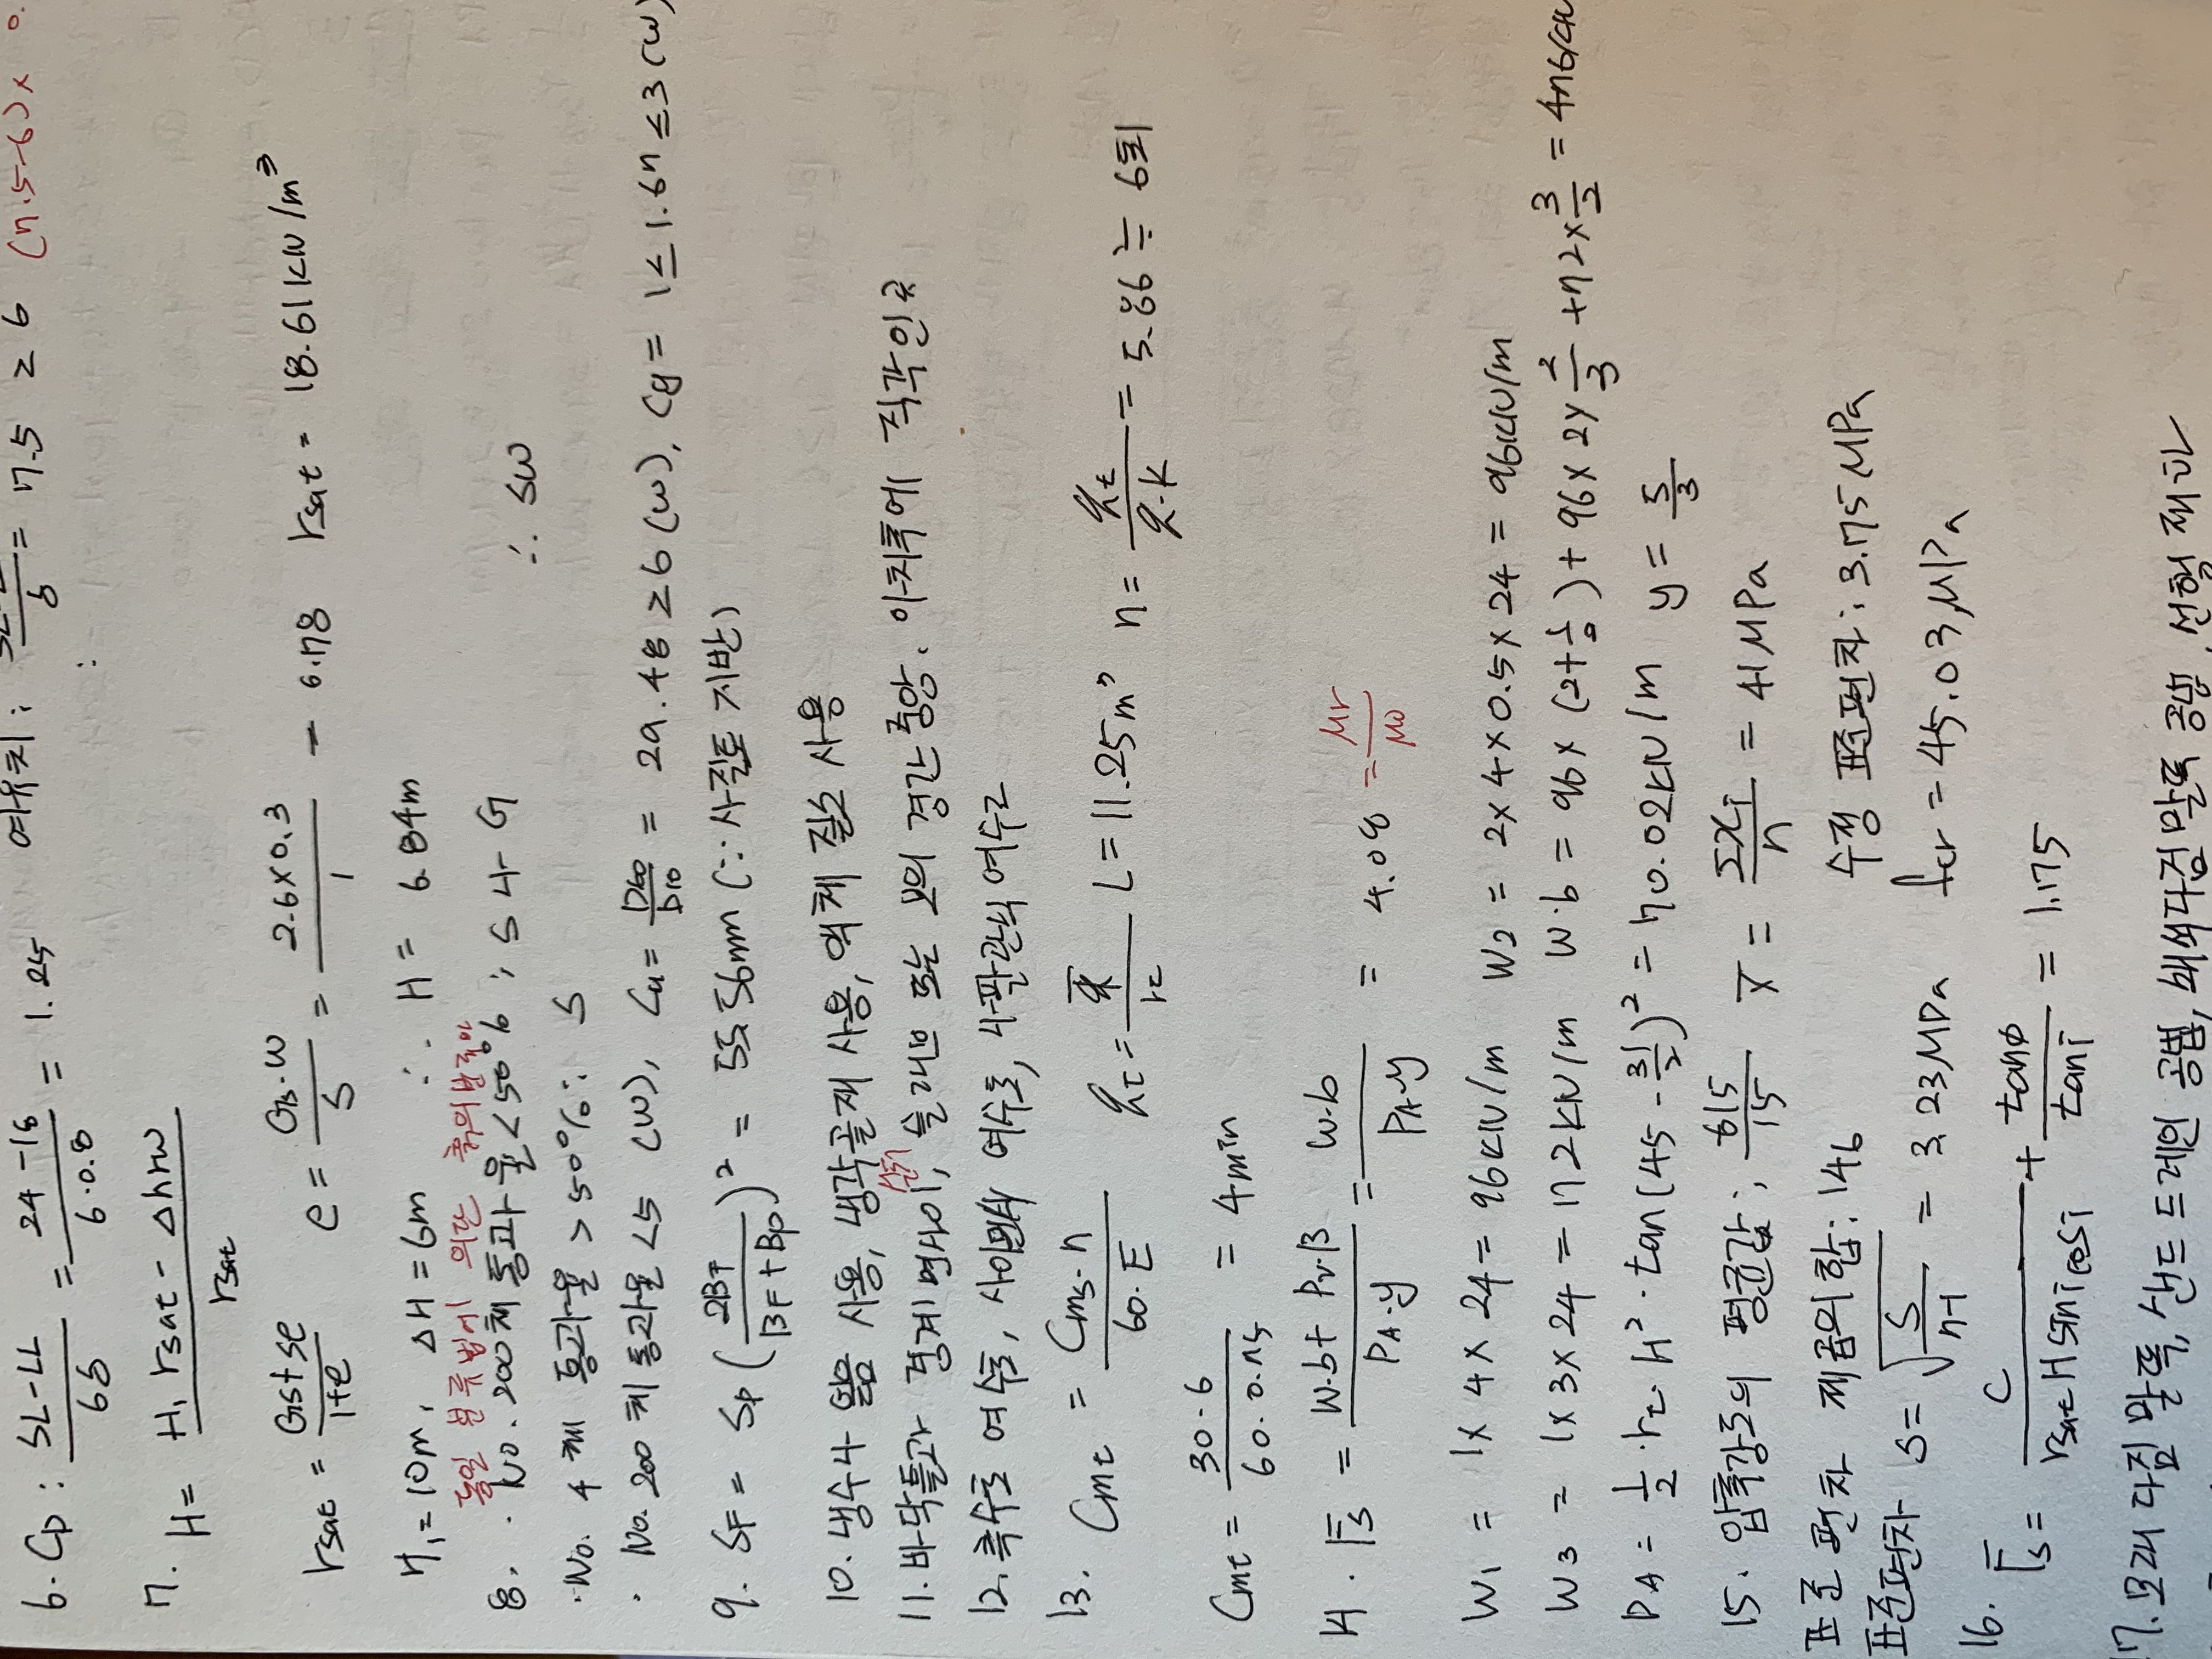 6. Cp : SL-LL/6σ = 24-18/6·0.8 = 1.25 여유치 : SL-LL/σ = 7.5 ≥ 6 (7.5-6)×0.
7. H = H₁ rsat - Δhrw / rsat
rsat = Gs+Se/1+e e = Gs·w/S = 2.6×0.3/1 = 0.78 rsat = 18.61kN/m³
H₁=10m, ΔH=6m ∴ H = 6.84m
통일 분류법에 의한 흙의 분류
8. · No. 200체 통과율 < 50% ; S 나 G
· No. 4 체 통과율 > 50% : S ∴ SW
· No. 200체 통과율 <5 (W), Cu = D60/D10 = 29.48 ≥ 6 (W), Cg = 1 ≤ 1.67 ≤ 3 (W)
9. SF = Sp (2BF/BF+Bp)² = 55.56mm (∵ 사질토 지반)
10. 냉수나 얼음 사용, 냉각골재 사용, 액체 질소 사용
11. 바닥틀과 경계면사이, 슬래브 또는 보의 경간 중앙. 아치축에 직각인곳
12. 측수로 여수로, 사이펀식 여수로, 나팔관식 여수로
13. Cmt = Cms·n/60·E qt = q̄/rt L = 11.25m³ n = qt/q·k = 5.86 ≒ 6회
Cmt = 30·6/60·0.75 = 4min
14. Fs = W·b+Pv·B/PA·y = W·b/PA·y = 4.08 = Mr/Mo
W₁ = 1×4×24 = 96kN/m W₂ = 2×4×0.5×24 = 96kN/m
W₃ = 1×3×24 = 72kN/m W·b = 96×(2+1/2)+96×2×2/3+72×3/2 = 476kN
PA = 1/2·rt·H²·tan(45-31/2)² = 70.02kN/m y = 5/3
15. 압축강도의 평균값; 615/15 x̄ = Σxi/n = 41MPa
표준편차 제곱의합: 146 수정 표준편차: 3.75MPa
표준편차 S = √S/n-1 = 3.23MPa fcr = 45.03MPa
16. Fs = C/rsat H sini cosi + tanφ/tani = 1.175
17. 모래 다짐 말뚝, 샌드 드레인 공법, 쇄석다짐말뚝 공법, 선행 재하